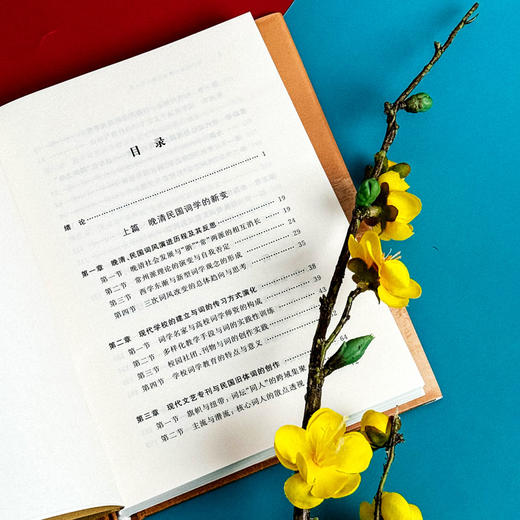 目 录
绪 论 1
上篇 晚清民国词学的新变
第一章 晚清、民国词风演进历程及其反思 19
第一节 晚清社会发展与“浙”“常”两派的相互消长 19
第二节 常州派理论的嬗变与自我否定 24
第三节 西学东渐与新型词学观念的形成 29
第四节 三次词风改变的总体趋向与思考 35
第二章 现代学校的建立与词的传习方式演化 38
第一节 词学名家与高校词学师资的构成 39
第二节 多样化教学手段与词的实践性训练
第三节 校园社团、刊物与词的创作实践
第四节 学校词学教育的特点与意义
第三章 现代文艺专刊与民国旧体词的创作 64
第一节 旗帜与纽带：词坛“同人”的跨域集聚
第二节 主流与潜流：核心词人的散点透视